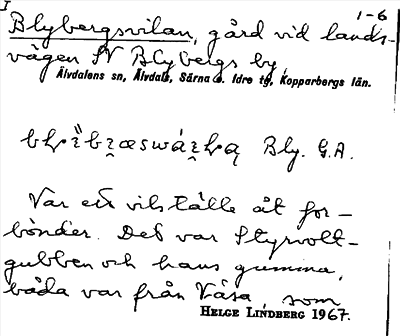 1-6
Blybergsvilan, gård vid lands-
vägen SV Blybergs by,
Älvdalens sn, Älvdals, Särna o. Idre tg, Kopparbergs län.
Bly. G.A.
Var ett vilställe åt for-
bönder. Det var Styrvolt-
gubben och hans gumma,
båda var från Våsa, som
HELGE LINDBERG 1967.